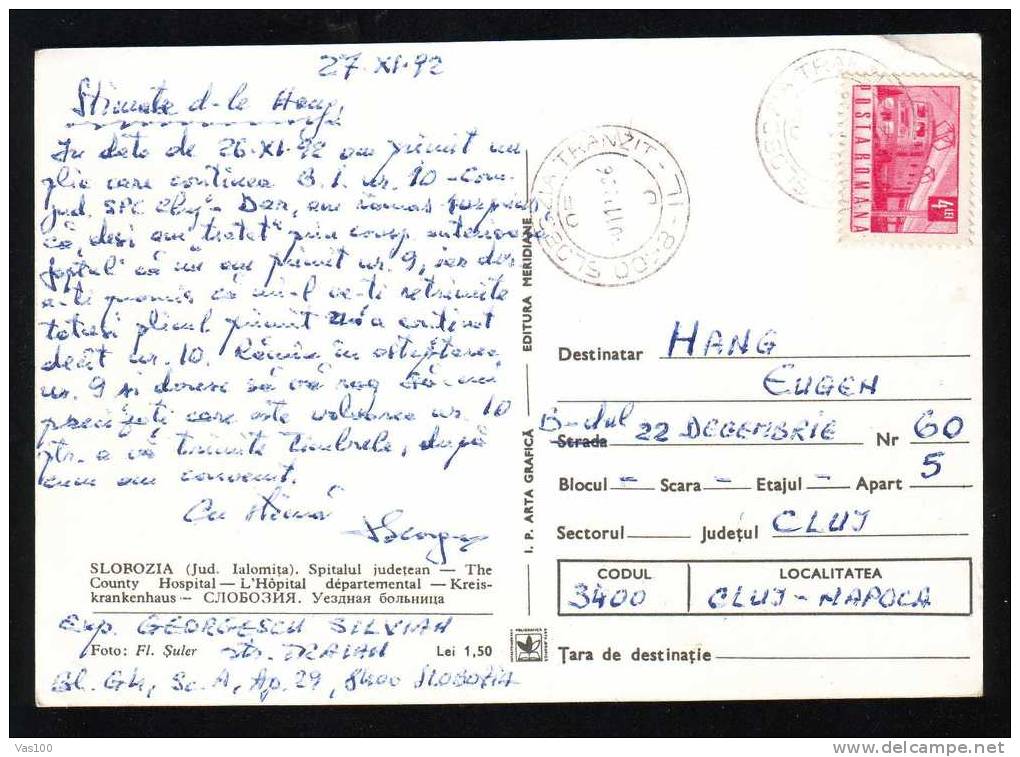 27.XI.92
Stimate d-le Hang,
In data de 26.XI.92 am primit un
plic care continea B.I. nr. 10 - Com.
jud. SPC Cluj. Dar, am ramas surprins
că, desi am tratat prin coresp. anterioară
faptul că nu am primit nr. 9, iar dvs
a-ti promis că mi-l ve-ti retrimite
totusi plicul primit n-a continut
decât nr. 10. Rămân în asteptarea
nr. 9 si doresc să vă rog să-mi
precizati care este valoarea nr. 10
ptr. a vă trimite timbrele, după
cum am convenit.
Cu stimă
SLOBOZIA (Jud. Ialomița). Spitalul județean — The
County Hospital — L'Hôpital départemental — Kreis-
krankenhaus — СЛОБОЗИЯ. Уездная больница
Exp. GEORGESCU SILVIAN
Foto: Fl. Șuler str. TRAIAN Lei 1,50
Bl. G4, Sc. A, Ap. 29, 8400 SLOBOZIA
I. P. ARTA GRAFICĂ EDITURA MERIDIANE
SLOBOZIA TRANZIT - IL - 8400
POSTA ROMANA
4 LEI
Destinatar HANG
EUGEN
B-dul
Strada 22 DECEMBRIE Nr 60
Blocul - Scara - Etajul - Apart 5
Sectorul Județul CLUJ
CODUL LOCALITATEA
3400 CLUJ-NAPOCA
Țara de destinație
Vas100
www.delcampe.net